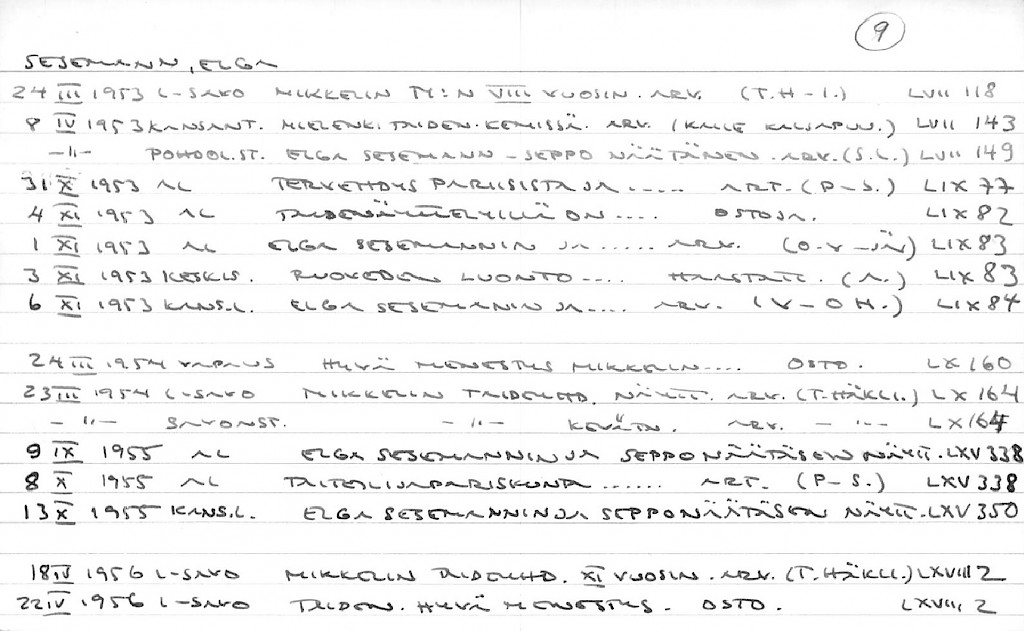 9
SESEMANN, ELGA
24 III 1953 L-SAVO MIKKELIN TY:N VIII VUOSIN. ARV. (T.H-I.) LVII 118
8 IV 1953 KANSANT. MIELENK. TAIDEN. KEMISSÄ. ARV. (KALLE KALJAPUU.) LVII 143
-"- POHDOL.ST. ELGA SESEMANN - SEPPO NÄÄTÄNEN. ARV. (S.L.) LVII 149
31 X 1953 AL TERVEHDYS PARIISISTA JA ..... ART. (P-S.) LIX 77
4 XI 1953 AL TAIDENÄYTTELYILLÄ ON .... OSTOJA. LIX 82
1 XI 1953 AL ELGA SESEMANNIN JA ..... ARV. (O-V-JÄ) LIX 83
3 XI 1953 KESKIS. RUOVEDEN LUONTO .... HAASTATT. (A.) LIX 83
6 XI 1953 KANS.L. ELGA SESEMANNIN JA .... ARV. (V-O H.) LIX 84
24 III 1954 VAPAUS HYVÄ MENESTYS MIKKELIN .... OSTO. LX 160
23 III 1954 L-SAVO MIKKELIN TAIDEYHD. NÄYTT. ARV. (T. HÄKLI.) LX 164
-"- SAVONST. -"- KEVÄTN. ARV. -"- LX 164
9 IX 1955 AL ELGA SESEMANNIN JA SEPPO NÄÄTÄSEN NÄYTT. LXV 338
8 X 1955 AL TAITEILIJAPARISKUNTA ...... ART. (P-S.) LXV 338
13 X 1955 KANS.L. ELGA SESEMANNIN JA SEPPO NÄÄTÄSEN NÄYTT. LXV 350
18 IV 1956 L-SAVO MIKKELIN TAIDEYHD. XI VUOSIN. ARV. (T. HÄKLI.) LXVIII 2
22 IV 1956 L-SAVO TAIDEN. HYVÄ MENESTYS. OSTO. LXVIII 2